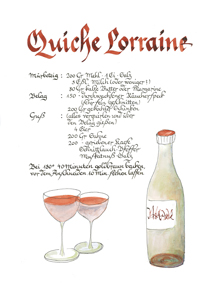 Quiche Lorraine
Mürbeteig: 200 Gr Mehl - 1 Ei - Salz
3 EßL. Milch (oder weniger!)
80 Gr kalte Butter oder Margarine
Belag: 150 - durchwachsener Räucherspeck
(sehr fein geschnitten)
200 Gr gekochter Schinken
Guß: (alles verquirlen und über
den Belag gießen)
4 Eier
200 Gr Sahne
200 - geriebener Käse
Schnittlauch - Pfeffer
Muskatnuß - Salz
Bei 190° 40 Minuten goldbraun backen,
vor dem Aufschneiden 10 Min. stehen lassen